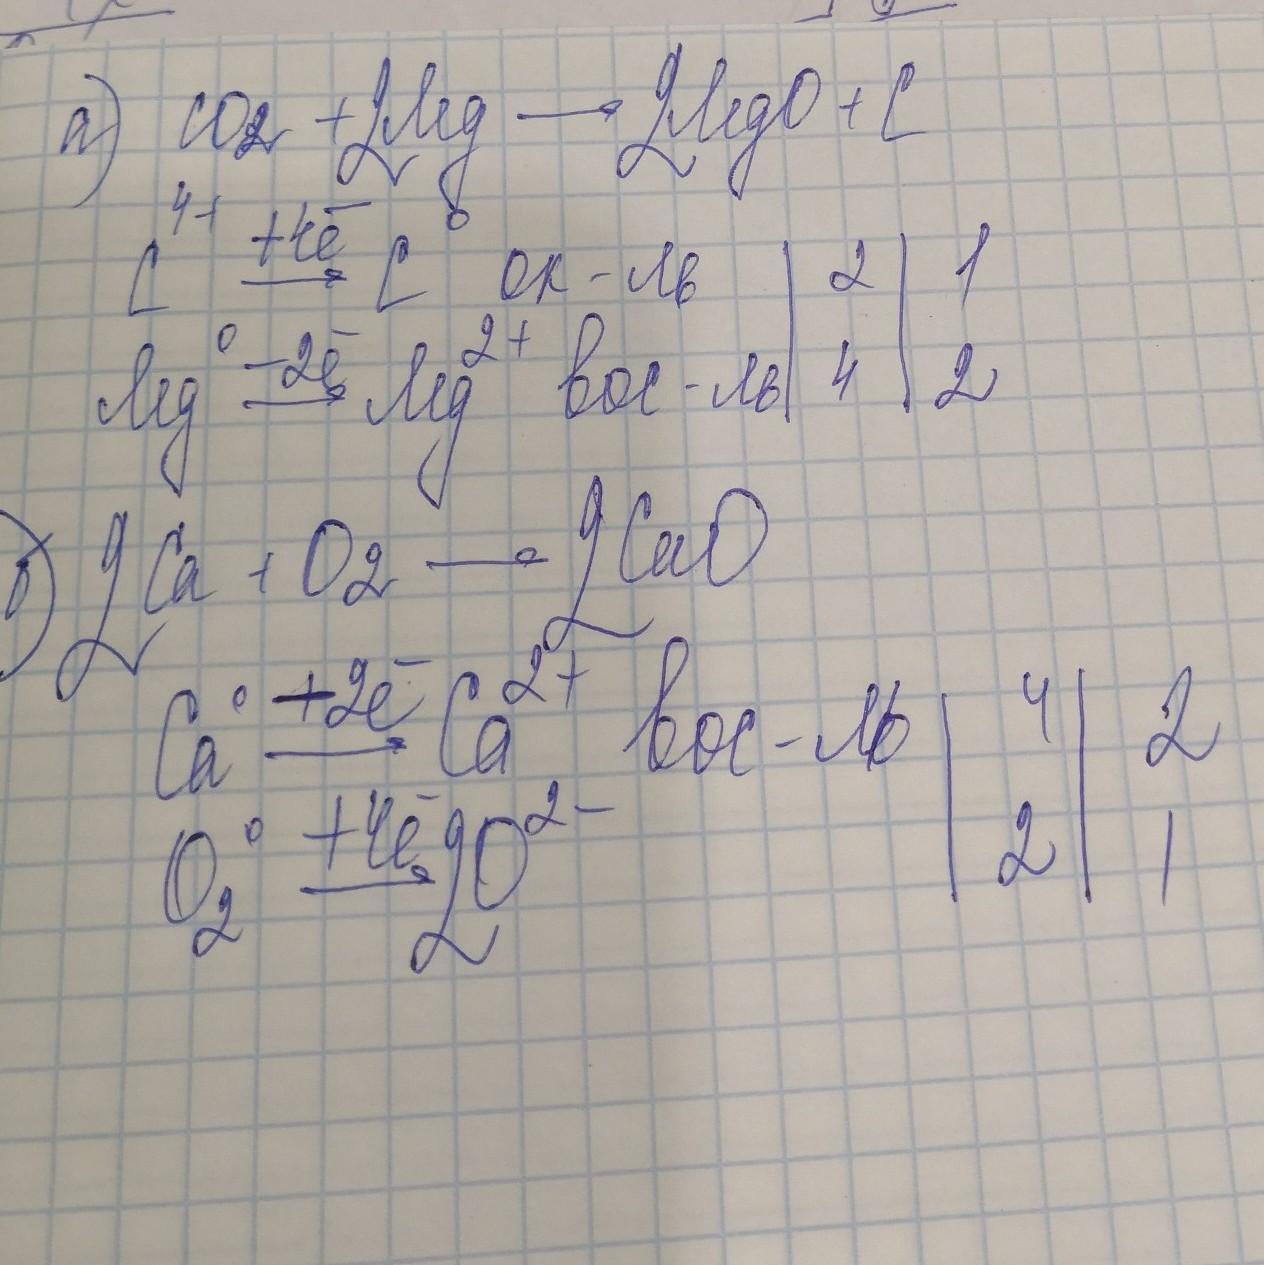 а) CO2 + 2Mg → 2MgO + C
C⁴⁺ +4ē→ C⁰ ок-ль | 2 | 1
Mg⁰ -2ē→ Mg²⁺ вос-ль | 4 | 2
б) 2Ca + O2 → 2CaO
Ca⁰ +2ē→ Ca²⁺ вос-ль | 4 | 2
O2⁰ +4ē→ 2O²⁻ | 2 | 1